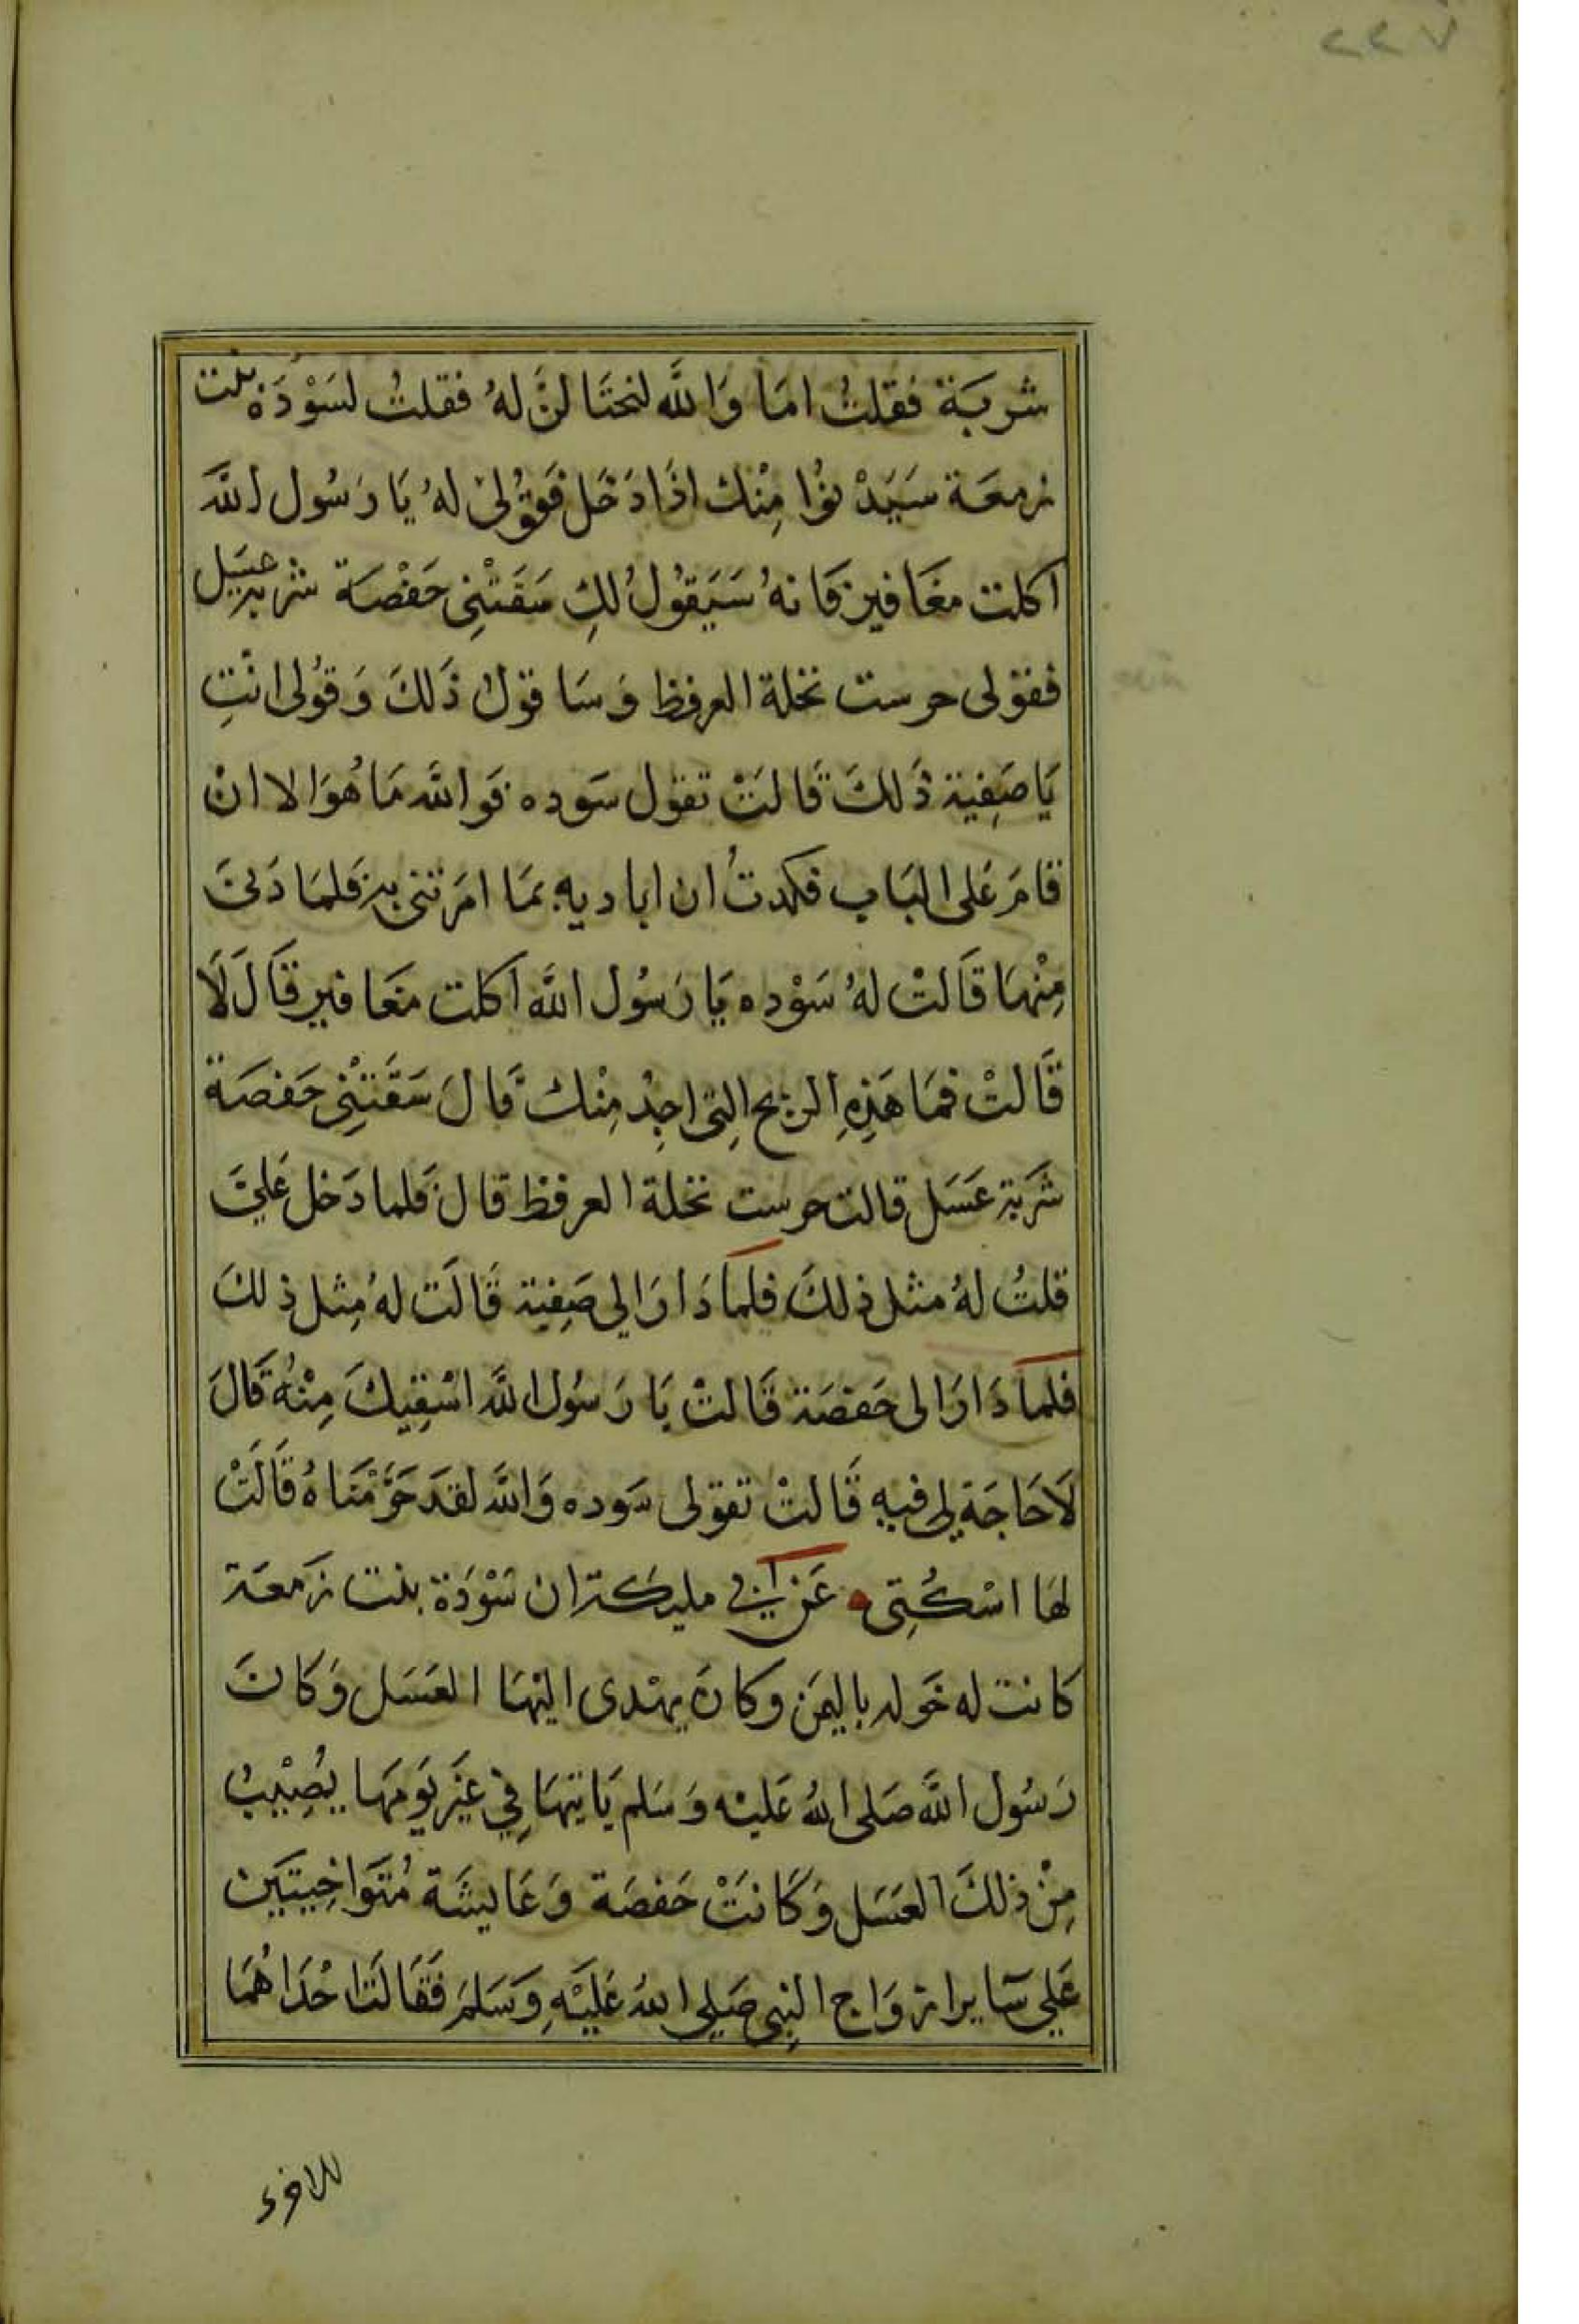 ٢٢٧
شربَة فقلتُ امَا وَالله لنحتَا لنَّ لهُ فقلتُ لسَوْدَة بنت
زمعَة سَيَدْ نوُا مِنْك اذَا دَخَل فَقوُلىْ لهُ يَا رَسُول الله
اكلت مغَافير فَانهُ سَيَقوُل لكِ سَقَتْنِى حَفْصَة شربة عسَل
فقولى جرست نخلة العرفظ وَسَا قول ذَلكَ وَقوُلى انْتِ
يَا صَفِية ذَلكَ قَالتْ تقول سَوده فوَ اللهِ مَا هُوَ الا انْ
قامَ عَلى البَاب فكدتُ ان اباديه بمَا امَرتنى به فَلمَا دَنىَ
مِنْهَا قَالتْ لهُ سَوْده يَا رَسُول الله اكلت مغَافير قَالَ لَا
قَالتْ فمَا هَذِهِ الريح التِى اجِدُ مِنْك قَالَ سَقَتْنِى حَفصَة
شَربة عَسَل قالت جرست نخلة العرفظ قال فَلما دَخل عَليَّ
قلتُ لهُ مثل ذلكَ فلمَا دَارَ الي صَفِية قَالَت لهُ مِثل ذلكَ
فلمَا دَارَ الى حَفصَة قَالتْ يَا رَسُول الله اسْقِيكَ مِنْهُ قَالَ
لَا حَاجَة لِي فيهِ قَالتْ تقولى سَوده وَالله لقدَ حَرَّمْنَاهُ قَالَتْ
لهَا اسْكُتِى عَن ابى مليكة ان سَوْدَة بنت زَمعَة
كانت له خَوله باليمَن وكانَ يهْدى اليْهَا العسَل وَكانَ
رَسُول الله صَلى اللهُ عَليْه وَسَلم يَاتيهَا فِي غيَر يَومهَا يُصِيْبُ
مِنْ ذلكَ العسَل وَكَانتْ حَفصَة وَعَايشَة مُتوَاخِيتَين
عَلي سَايرازوَاج النبِى صَلي اللهُ عَليَهِ وَسَلمَ فَقَالَتَا حْدَاهُمَا
للاخرى